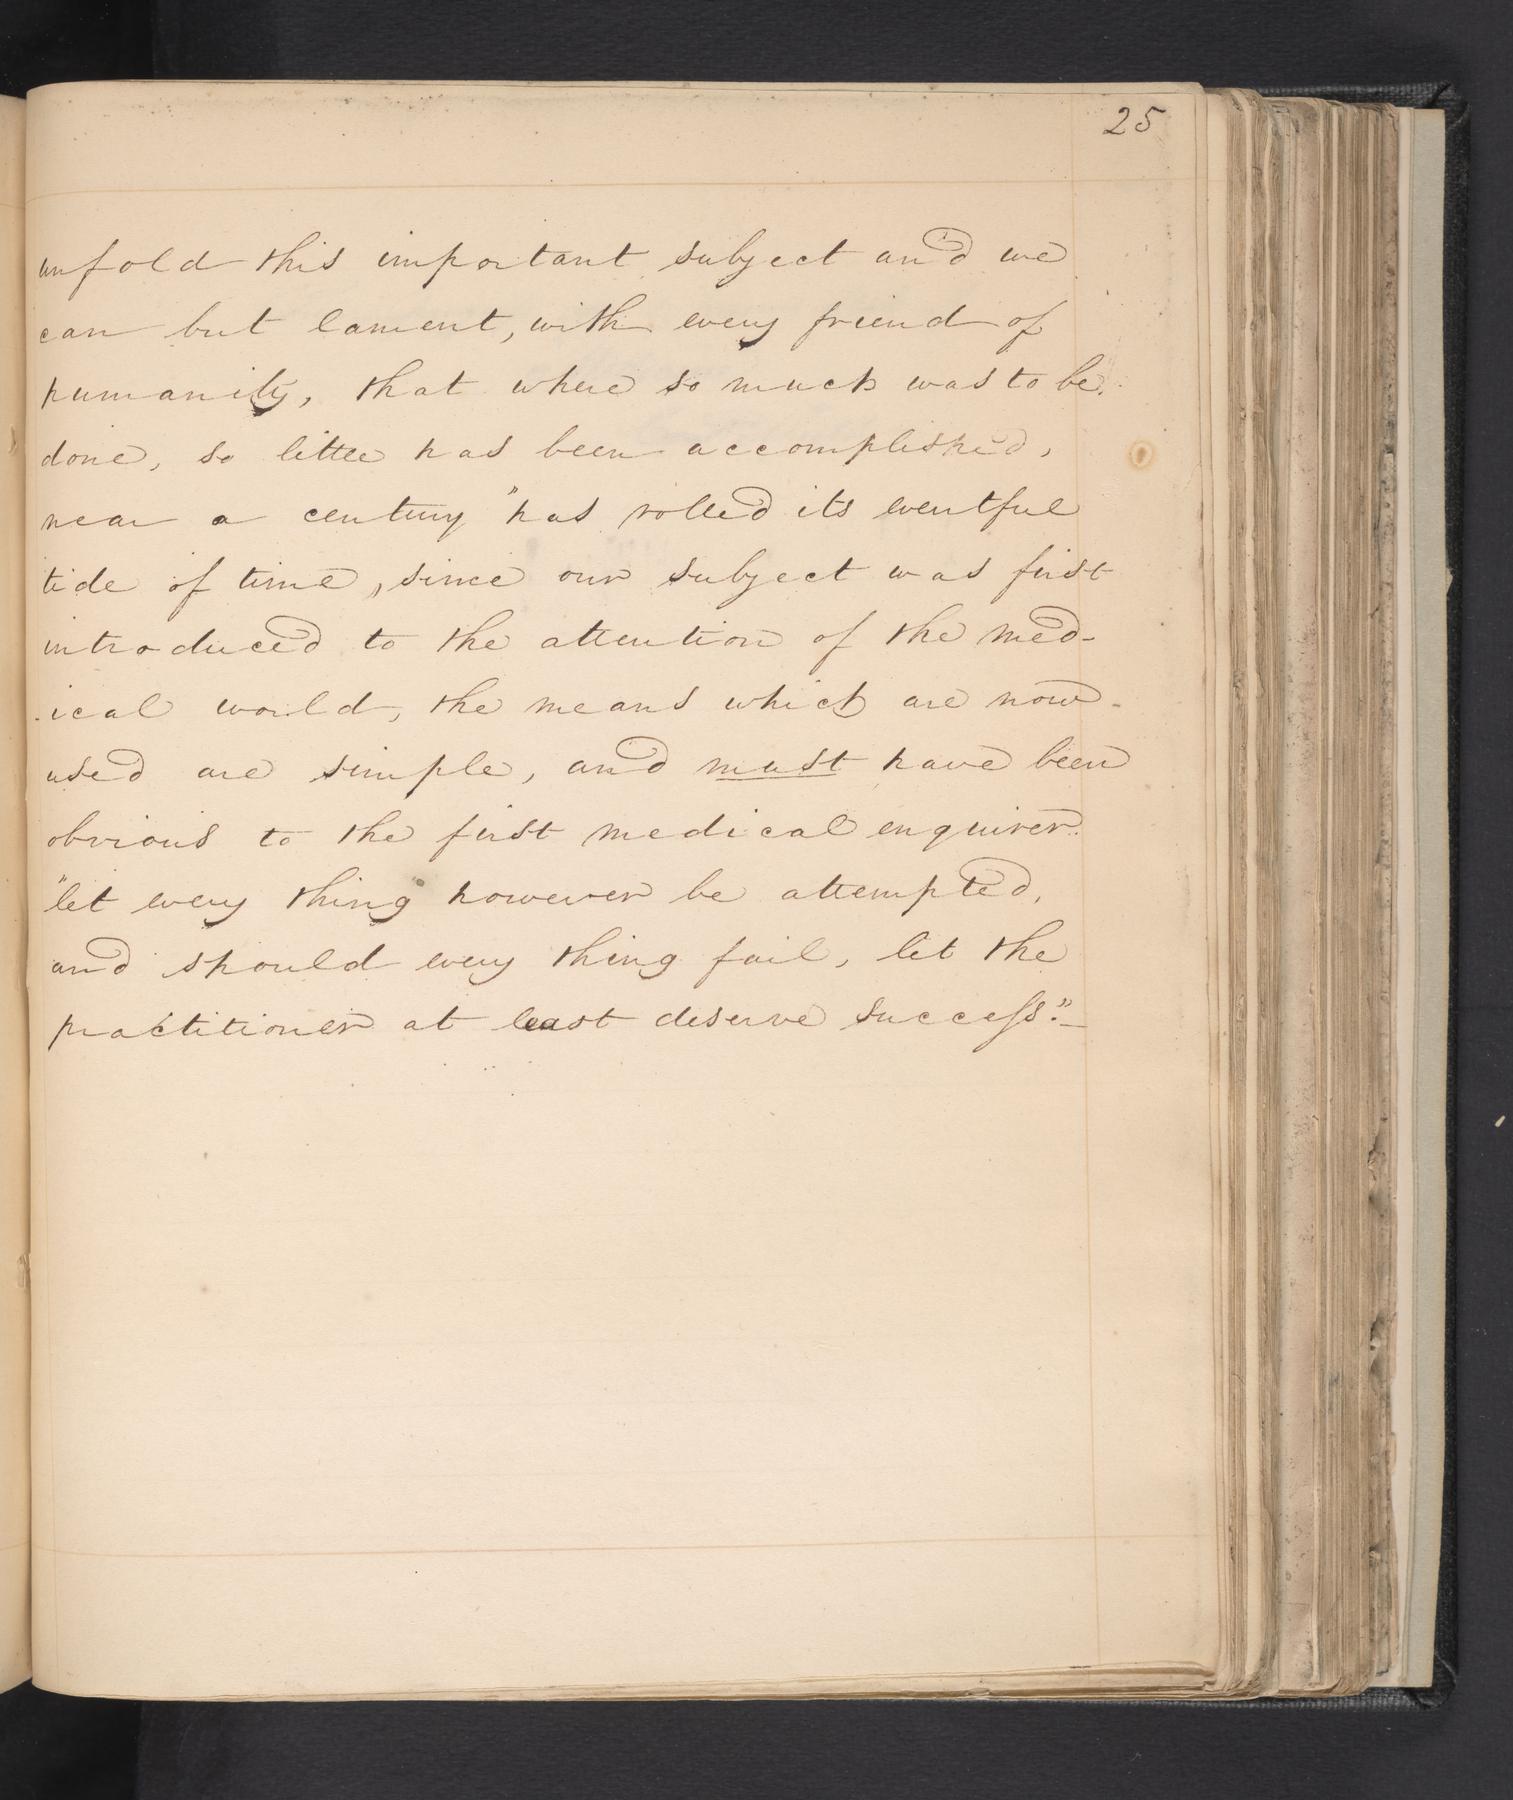 25
unfold this important subject and we
can but lament, with every friend of
humanity, that where so much was to be
done, so little has been accomplished,
near a century "has rolled its eventful
tide of time, since our subject was first
introduced to the attention of the med-
ical world, the means which are now
used are simple, and must have been
obvious to the first medical enquirer.
"let every thing however be attempted,
and should every thing fail, let the
practitioner at least deserve success."